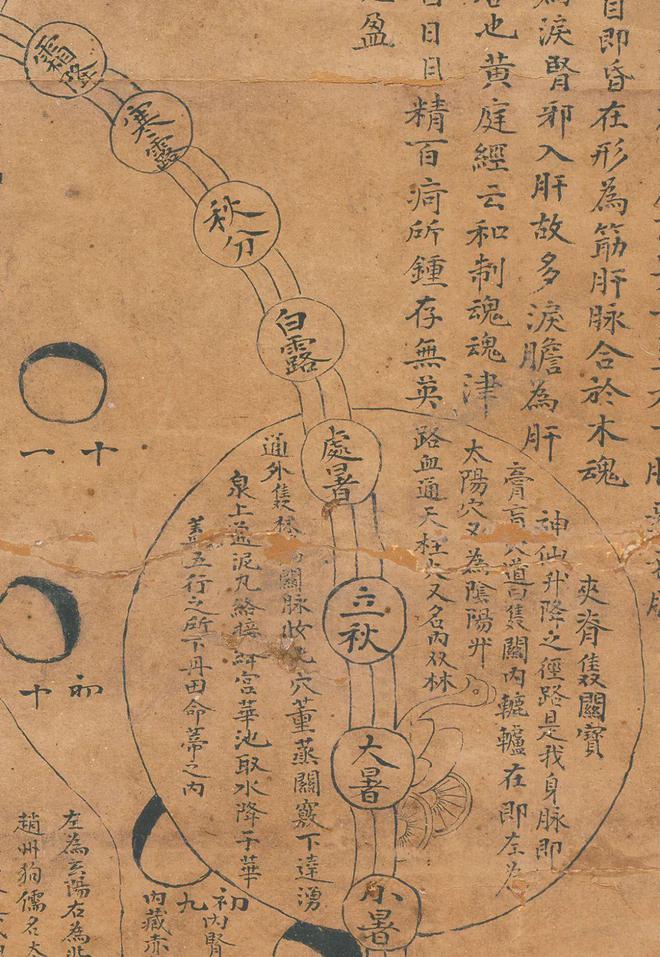 目即昏在形為筋肝脉合於木魂
為淚腎邪入肝故多淚膽為肝
也黃庭經云和制魂魂津
日目精百痾所鍾存無英
盈
夾脊雙關寶
神仙升降之徑路是我身脉即
膏肓穴道雙關內轆轤在即奈為
太陽穴又為陰陽升
路血通天柱穴又名內双林
通外雙林關脉收穴董蒸關竅下達湧
泉上通泥丸絡接絳宮華池取水降于華
蓋五行之所下丹田命蒂之內
霜降
寒露
秋分
白露
處暑
立秋
大暑
小暑
十一
初十
初九
內腎
內藏赤
左為玄陽右為
趙州狗儒名